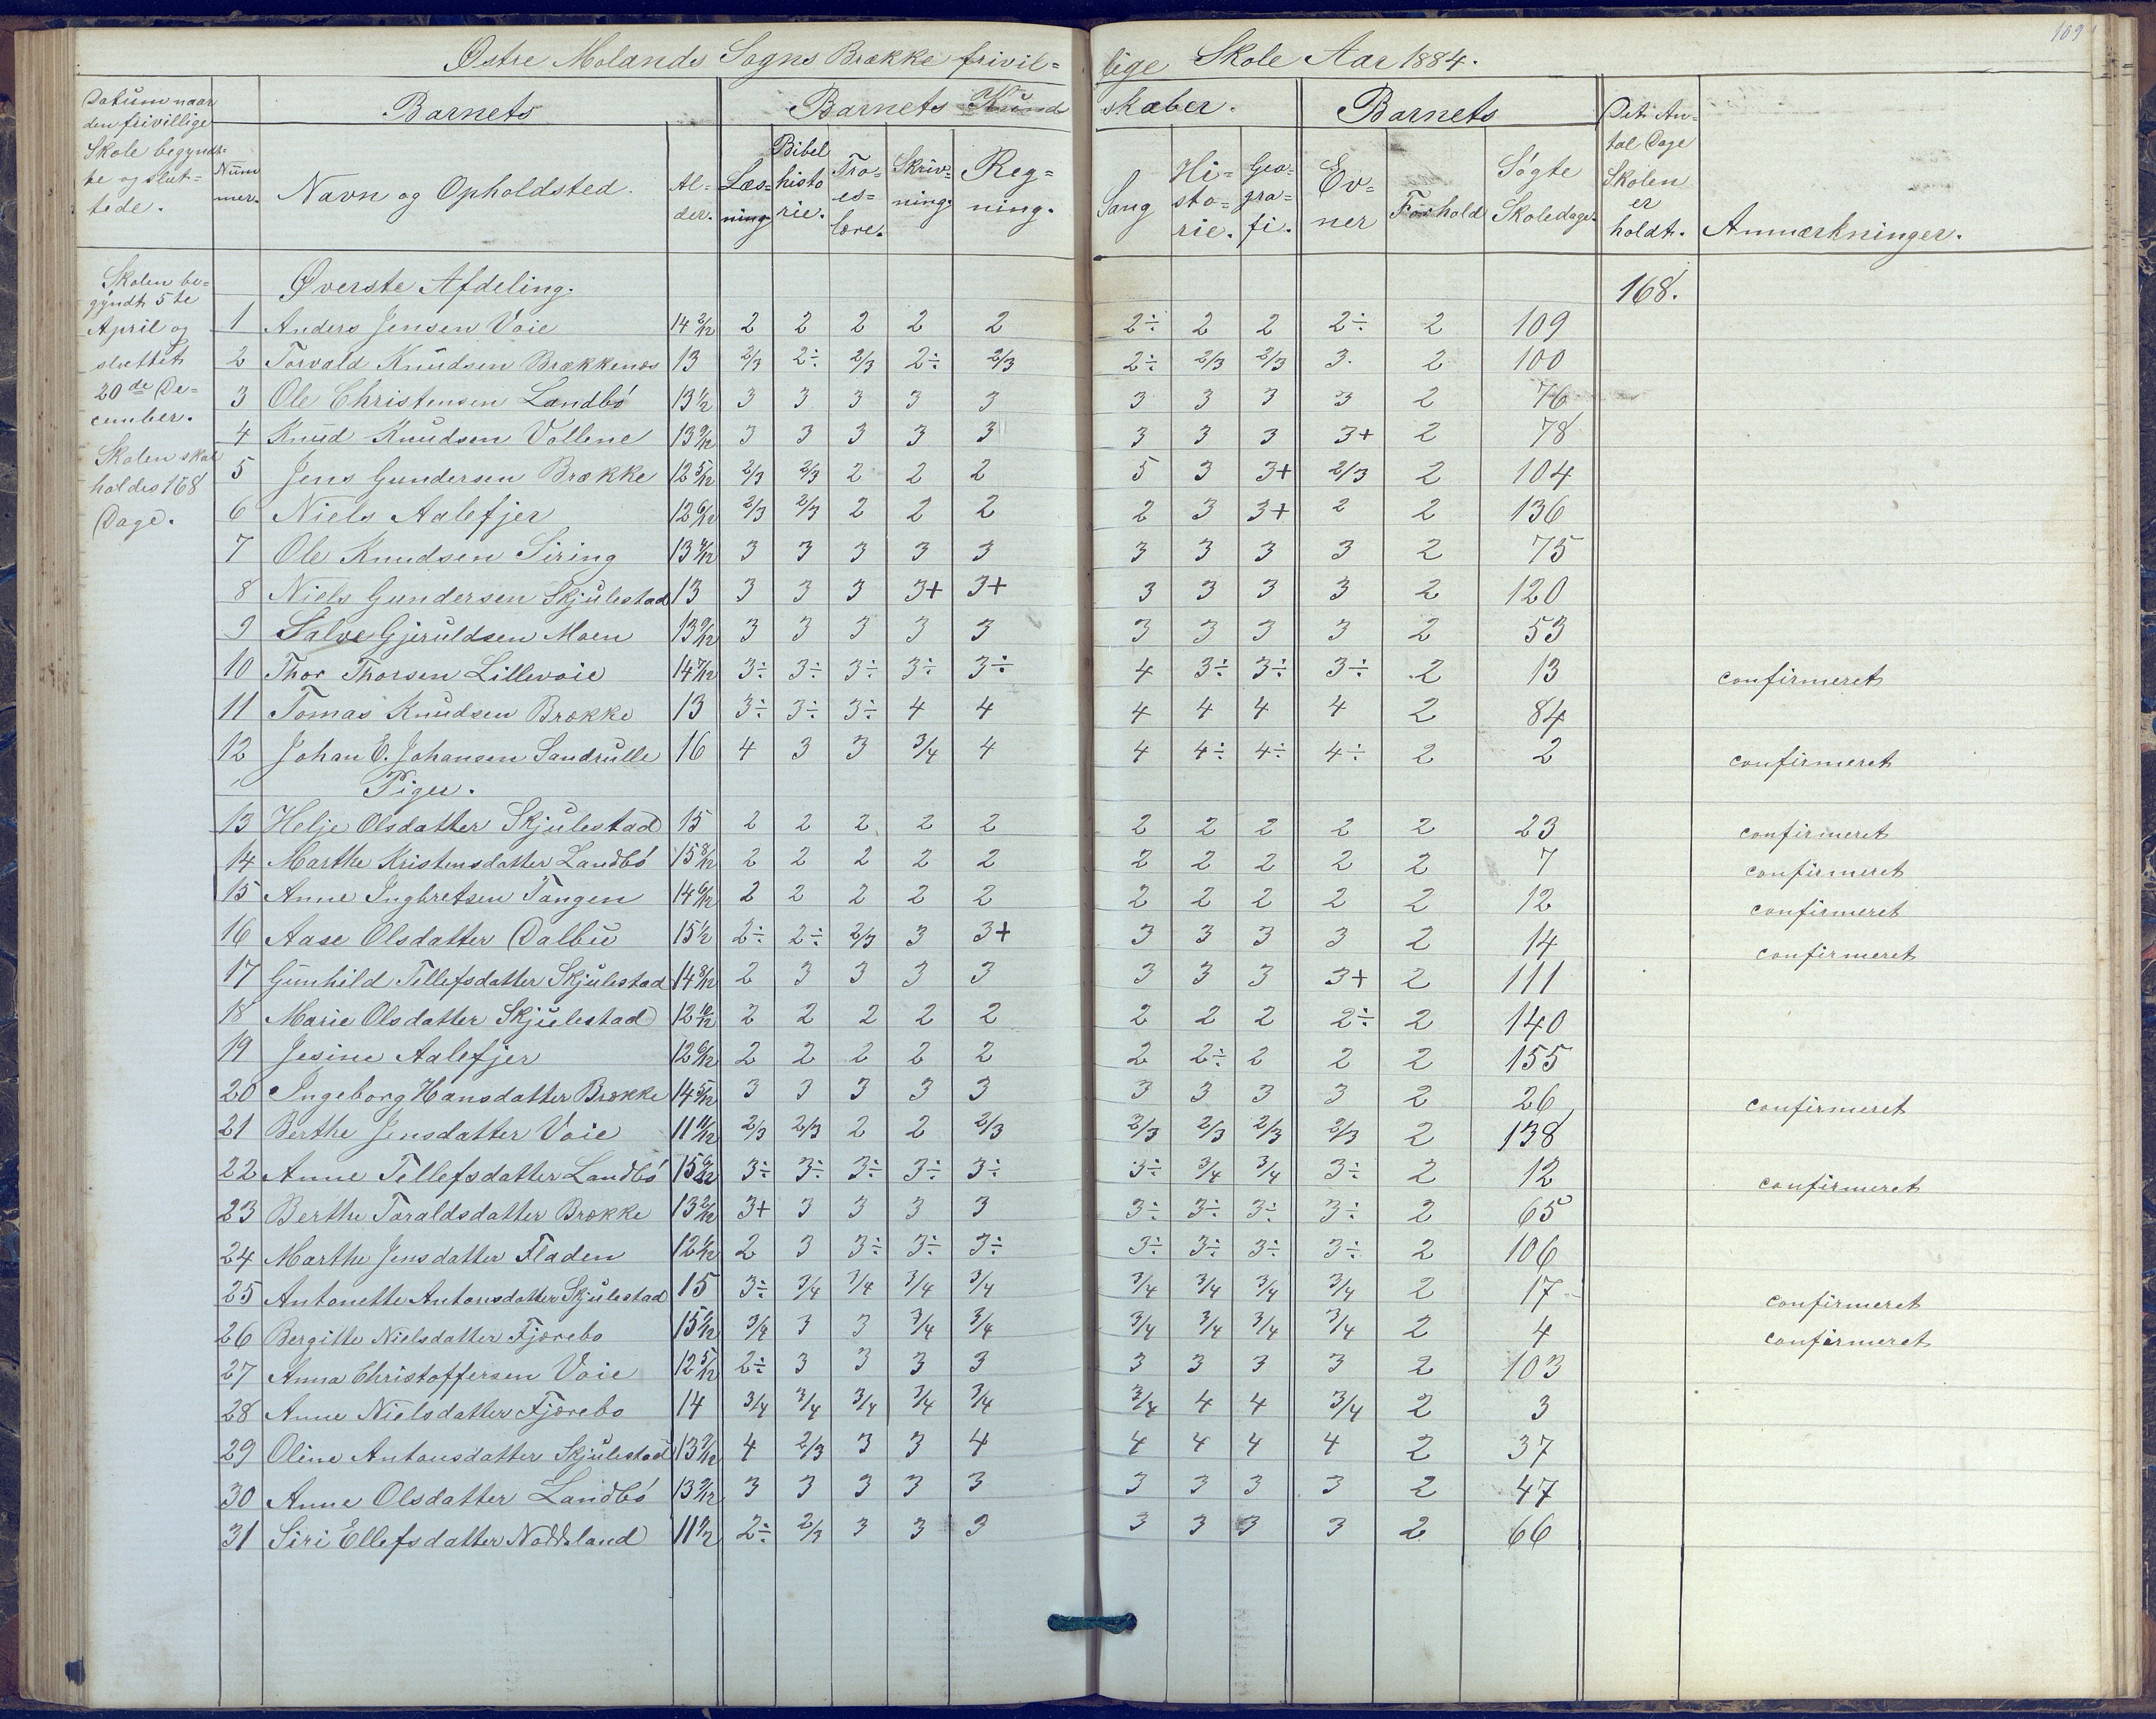 109
Østre Molands Sogns Brække frivil= lige Skole Aar 1884.
Datum naar den frivillige Skole begyndte og slut= tede.
Barnets
Num mer.
Navn og Opholdsted.
Al= der.
Barnets Kund skaber.
Læs= ning
Bibel histo rie.
Tro= es= lære.
Skriv= ning.
Reg= ning.
Sang
Hi= sto= rie.
Geo= gra= fi.
Barnets
Ev= ner
Forhold
Søgte Skoledage.
Det An= tal Dage Skolen er holdt.
Anmærkninger.
Skolen be=
gyndt 5te
April og
sluttet
20de De=
cember.
Skolen skal
holdes 168
Dage.
Øverste Afdeling. 168.
1 Anders Jensen Voie 14 2/12 2 2 2 2 2 2÷ 2 2 2÷ 2 109
2 Torvald Knudsen Brækkenæs 13 2/3 2÷ 2/3 2÷ 2/3 2÷ 2/3 2/3 3. 2 100
3 Ole Christensen Landbó 13 1/2 3 3 3 3 3 3 3 3 3 2 76
4 Knud Knudsen Vollene 13 9/12 3 3 3 3 3 3 3 3 3+ 2 78
5 Jens Gundersen Brække 12 5/12 2/3 2/3 2 2 2 5 3 3+ 2/3 2 104
6 Niels Aalefjer 12 6/12 2/3 2/3 2 2 2 2 3 3+ 2 2 136
7 Ole Knudsen Siring 13 4/12 3 3 3 3 3 3 3 3 3 2 75
8 Niels Gundersen Skjulestad 13 3 3 3 3+ 3+ 3 3 3 3 2 120
9 Salve Gjeruldsen Moen 13 9/12 3 3 3 3 3 3 3 3 3 2 53
10 Thor Thorsen Lillevoie 14 7/12 3÷ 3÷ 3÷ 3÷ 3÷ 4 3÷ 3÷ 3÷ 2 13 confirmeret
11 Tomas Knudsen Brække 13 3÷ 3÷ 3÷ 4 4 4 4 4 4 2 84
12 Johan E. Johansen Sandrulle 16 4 3 3 3/4 4 4 4÷ 4÷ 4÷ 2 2 confirmeret
Piger.
13 Helje Olsdatter Skjulestad 15 2 2 2 2 2 2 2 2 2 2 23 confirmeret
14 Marthe Kristensdatter Landbó 15 8/12 2 2 2 2 2 2 2 2 2 2 7 confirmeret
15 Anne Ingbretsen Tangen 14 6/12 2 2 2 2 2 2 2 2 2 2 12 confirmeret
16 Aase Olsdatter Dalbu 15 1/2 2÷ 2÷ 2/3 3 3+ 3 3 3 3 2 14 confirmeret
17 Gunhild Tellefsdatter Skjulestad 14 8/12 2 3 3 3 3 3 3 3 3+ 2 111
18 Marie Olsdatter Skjulestad 12 10/12 2 2 2 2 2 2 2 2 2÷ 2 140
19 Jesine Aalefjer 12 6/12 2 2 2 2 2 2 2÷ 2 2 2 155
20 Ingeborg Hansdatter Brække 14 5/12 3 3 3 3 3 3 3 3 3 2 26 confirmeret
21 Berthe Jensdatter Voie 11 11/12 2/3 2/3 2 2 2/3 2/3 2/3 2/3 2/3 2 138
22 Anne Tellefsdatter Landbó 15 6/12 3÷ 3÷ 3÷ 3÷ 3÷ 3÷ 3/4 3/4 3÷ 2 12 confirmeret
23 Berthe Toraldsdatter Brække 13 2/12 3+ 3 3 3 3 3÷ 3÷ 3÷ 3÷ 2 65
24 Marthe Jensdatter Fladen 12 1/12 2 3 3÷ 3÷ 3÷ 3÷ 3÷ 3÷ 3÷ 2 106
25 Antonette Antonsdatter Skjulestad 15 3÷ 3/4 3/4 3/4 3/4 3/4 3/4 3/4 3/4 2 17 confirmeret
26 Bergitte Nielsdatter Fjærebo 15 2/12 3/4 3 3 3/4 3/4 3/4 3/4 3/4 3/4 2 4 confirmeret
27 Anna Christoffersen Voie 12 5/12 2÷ 3 3 3 3 3 3 3 3 2 103
28 Anne Nielsdatter Fjærebo 14 3/4 3/4 3/4 3/4 3/4 3/4 4 4 3/4 2 3
29 Oline Antonsdatter Skjulestad 13 3/12 4 2/3 3 3 4 4 4 4 4 2 37
30 Anne Olsdatter Landbó 13 3/12 3 3 3 3 3 3 3 3 3 2 47
31 Siri Ellefsdatter Noddeland 11 1/2 2÷ 2/3 3 3 3 3 3 3 3 2 66